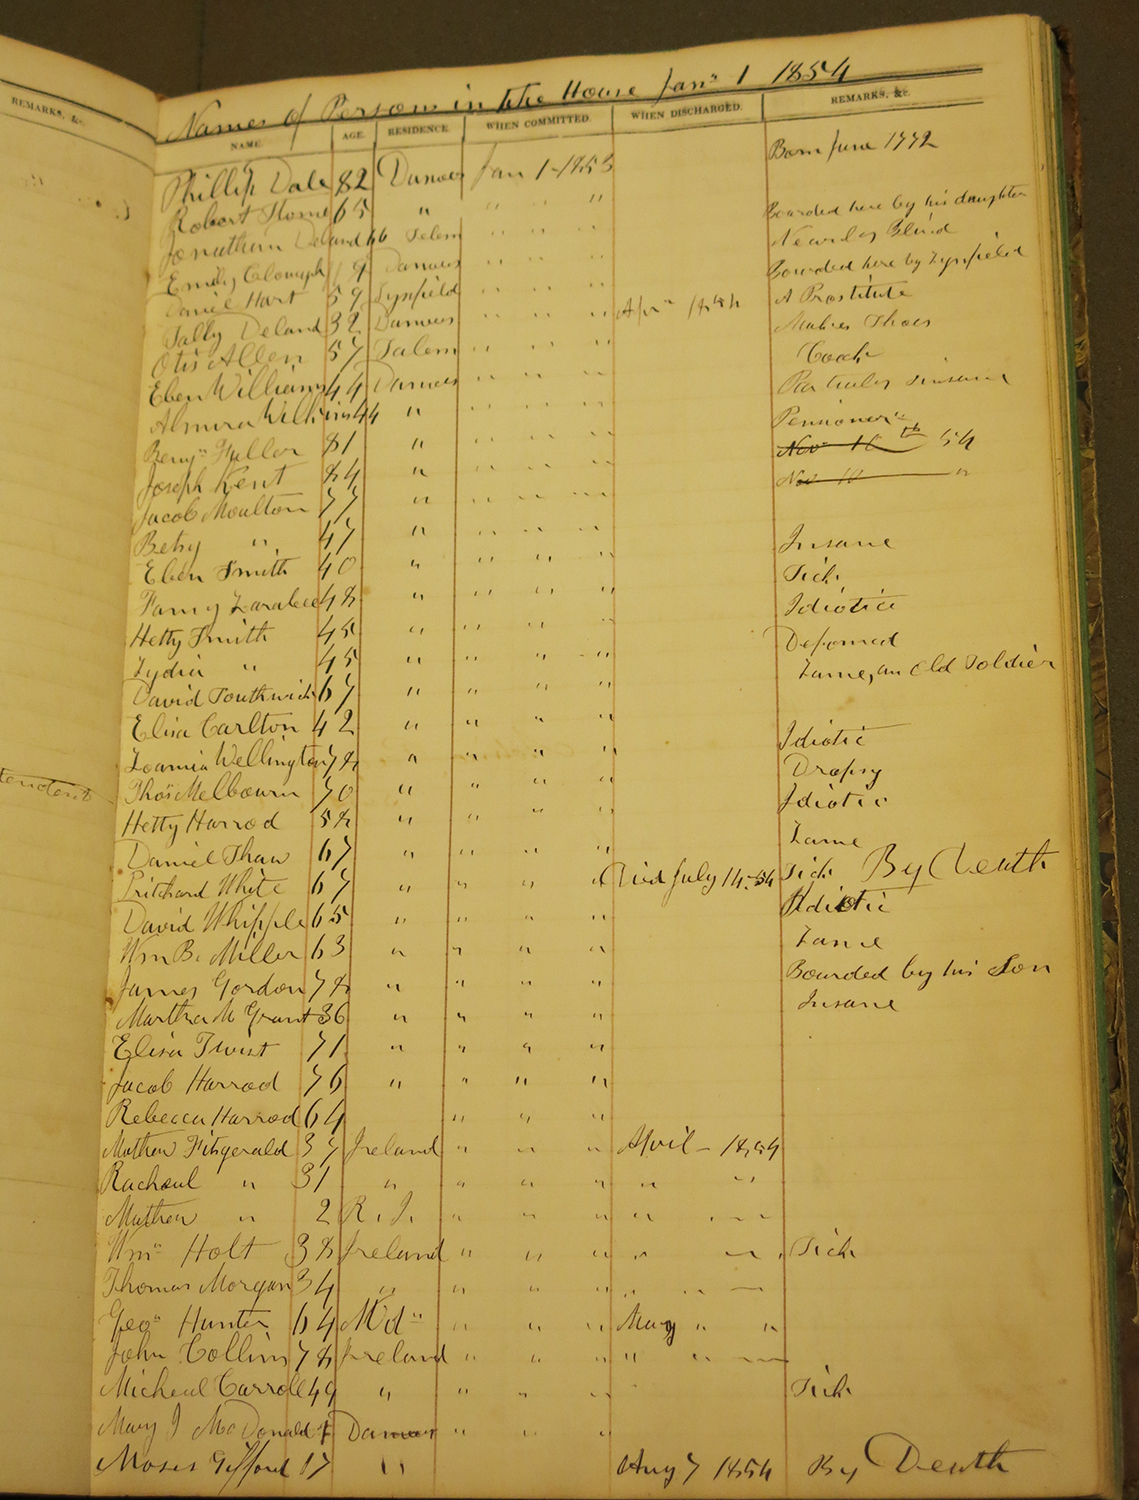 REMARKS, &c.
Names of Persons in the House Jan" 1 1854
NAME. AGE. RESIDENCE. WHEN COMMITTED. WHEN DISCHARGED. REMARKS, &c.
Phillip Dale 82 Danvers Jan 1-1853 Born June 1772
Robert Thome 65 " " " "
Jonathan Deland 66 Salem " " " Boarded here by his daughter
Emily 19 Danvers " " " Nearley Blind
Daniel Hart 59 Lynfield " " " Boarded here by Lynfield
Sally Deland 32 Danvers " " " Apr" 1854 A Prostitute
Otis Allen 57 Salem " " " Makes Shoes
Eben Williams 44 Danvers " " " Cook
Almira Wilkins 44 " " " " insane
Benj" Fuller 81 " " " " Pensioner"
Joseph Kent 84 " " " " Nov 10th 54
Jacob Moulton 77 " " " " Nov 10 "
Betsy " 47 " " " "
Eben Smith 40 " " " " Insane
Fanny Larabee 48 " " " " Sick
Hetty Smith 45 " " " " Idiotic
Lydia " 45 " " " " Deformed
David Southwick 67 " " " " Lame, an Old Soldier
Eliza Carlton 42 " " " "
Wellington 78 " " " " Idiotic
Thos Melbourn 70 " " " " Dropsy
Hetty Harrod 58 " " " " Idiotic
Daniel Shaw 67 " " " " Lame
Pritchard White 67 " " " " Died July 14-54 Sick By Death
David Whipple 65 " " " " Idiotic
Wm B. Miller 63 " " " " Lame
James Gordon 78 " " " " Boarded by his Son
Martha M Grant 36 " " " " Insane
Eliza Twist 71 " " " "
Jacob Harrod 76 " " " "
Rebecca Harrod 64 " " "
Mathew Fitzgerald 37 Ireland " " " April - 1854
Rachael " 31 " " " " " "
Mathew " 2 R. I. " " " "
Wm" Holt 38 Ireland " " " " Sick
Thomas Morgan 34 " " " " " "
Geo" Hunter 64 Md" " " " May " "
John Collins 78 Ireland " " " " "
Micheal Carroll 49 " " " " Sick
Mary J McDonald Danvers " " "
Moses Gifford 17 " Aug 7 1854 By Death